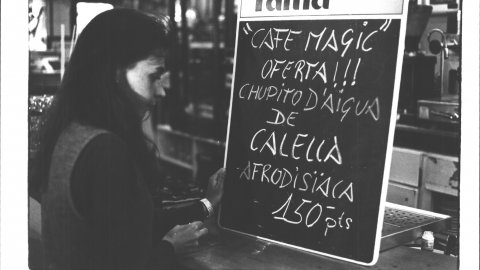 rama
"CAFE MAGIC"
OFERTA!!!
CHUPITO D'AIGUA
DE
CALELLA
AFRODISÍACA
150 pts